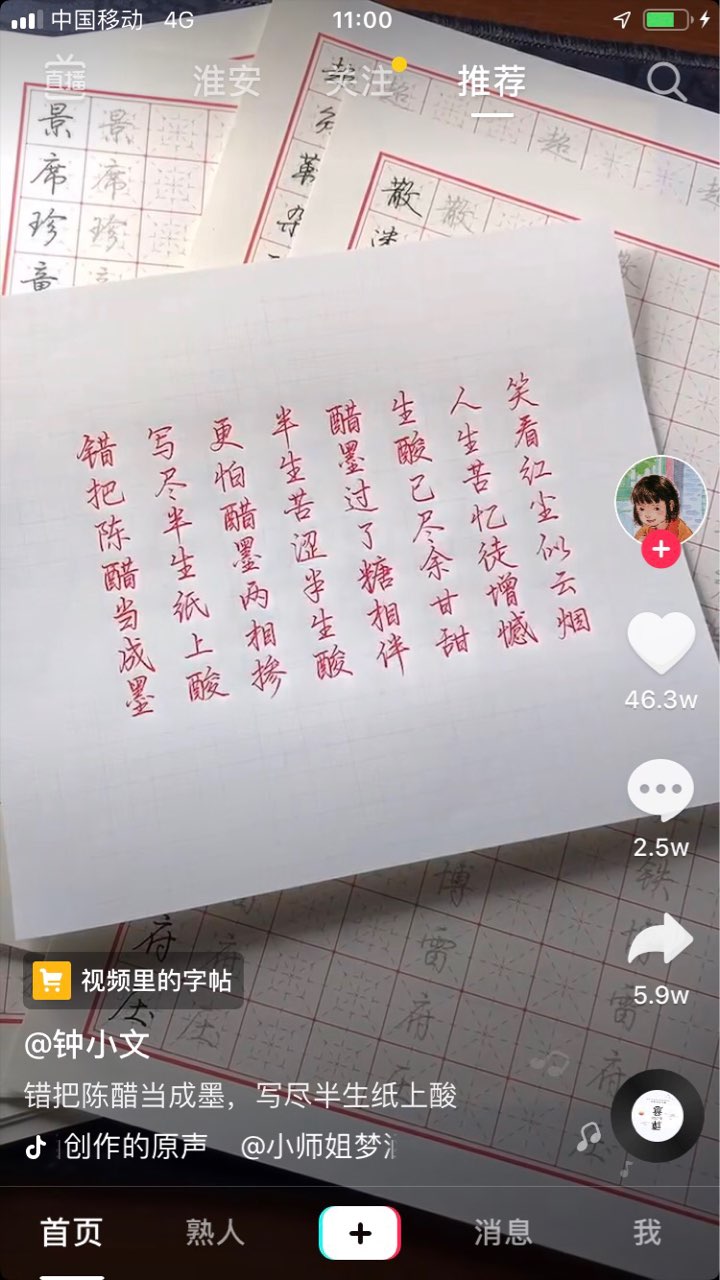 中国移动 4G 11:00
直播 淮安 关注 推荐
景 景
席 席
珍 珍
童
超 超 超
散 散
错把陈醋当成墨
写尽半生纸上酸
更怕醋墨两相掺
半生苦涩半生酸
醋墨过了糖相伴
生酸已尽余甘甜
人生苦忆徒增憾
笑看红尘似云烟
46.3w
2.5w
5.9w
博 铁
雷
府 府 雷
府
视频里的字帖
@钟小文
错把陈醋当成墨，写尽半生纸上酸
创作的原声 @小师姐梦
首页 熟人 消息 我